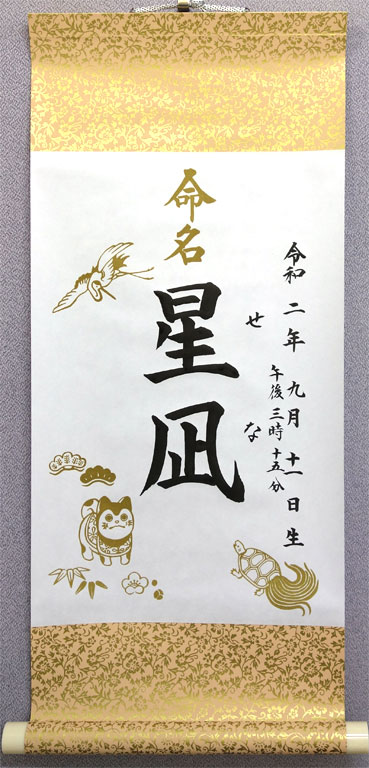 令和二年九月十一日生
午後三時十五分
せな
命名
星凪